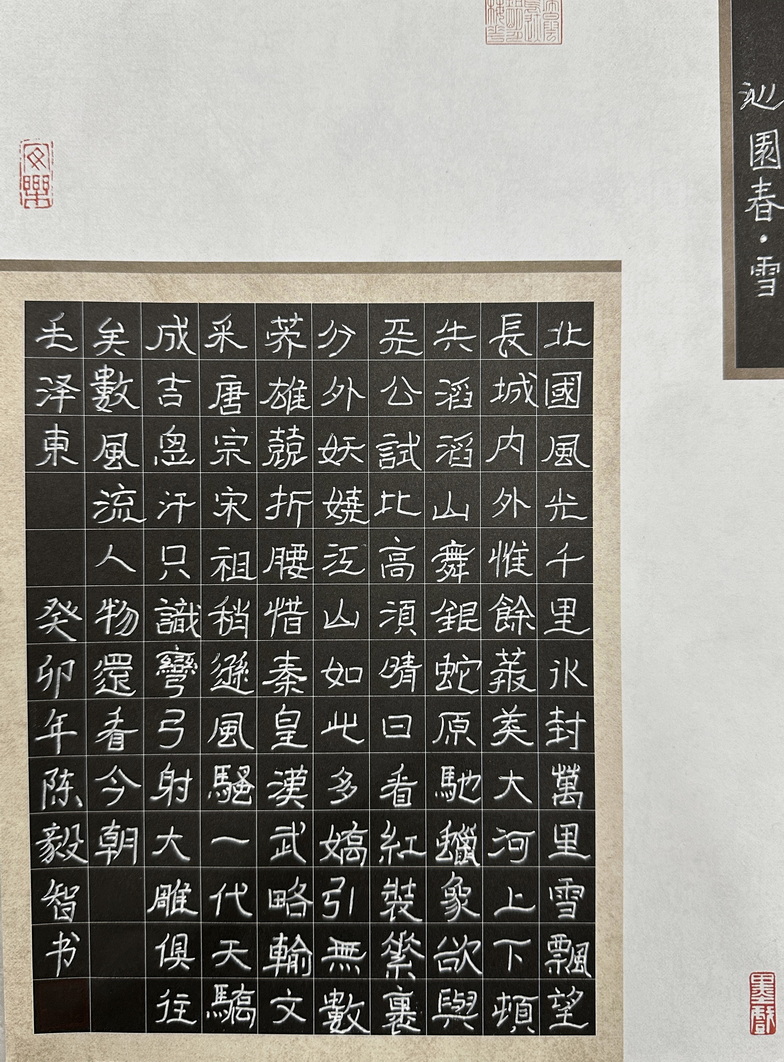 沁園春·雪
北國風光千里氷封萬里雪飄望
長城内外惟餘莽莽大河上下頓
失滔滔山舞銀蛇原馳蠟象欲與
天公試比高須晴日看紅裝素裹
分外妖嬈江山如此多嬌引無數
英雄競折腰惜秦皇漢武略輸文
采唐宗宋祖稍遜風騷一代天驕
成吉思汗只識彎弓射大雕俱往
矣數風流人物還看今朝
毛泽東 癸卯年陈毅智书
墨戲